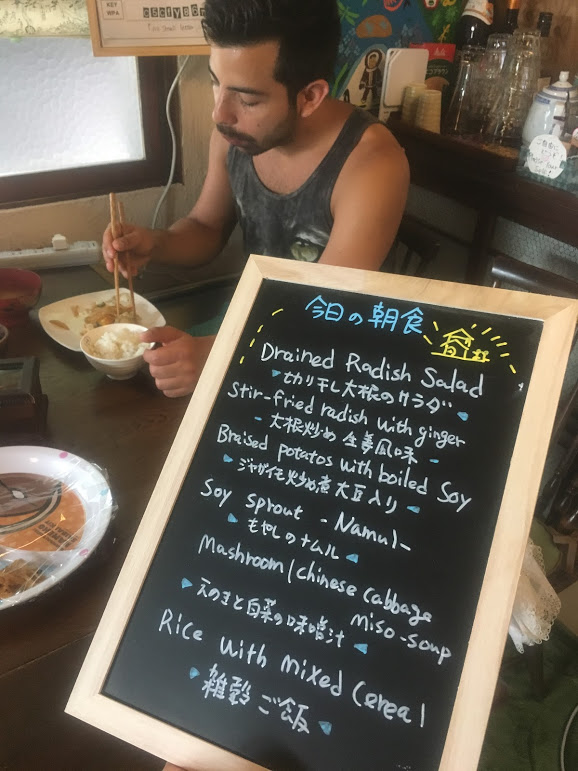 KEY
今日の朝食
Drained Radish Salad
切り干し大根のサラダ
Stir-fried radish with ginger
- 大根炒め 生姜風味 -
Braised potatos with boiled Soy
ジャガイモ炒め煮 大豆入り
Soy Sprout - Namul -
もやしのナムル
Mashroom / Chinese Cabbage
miso-soup
えのきと白菜の味噌汁
Rice with mixed Cereal
雑穀ご飯